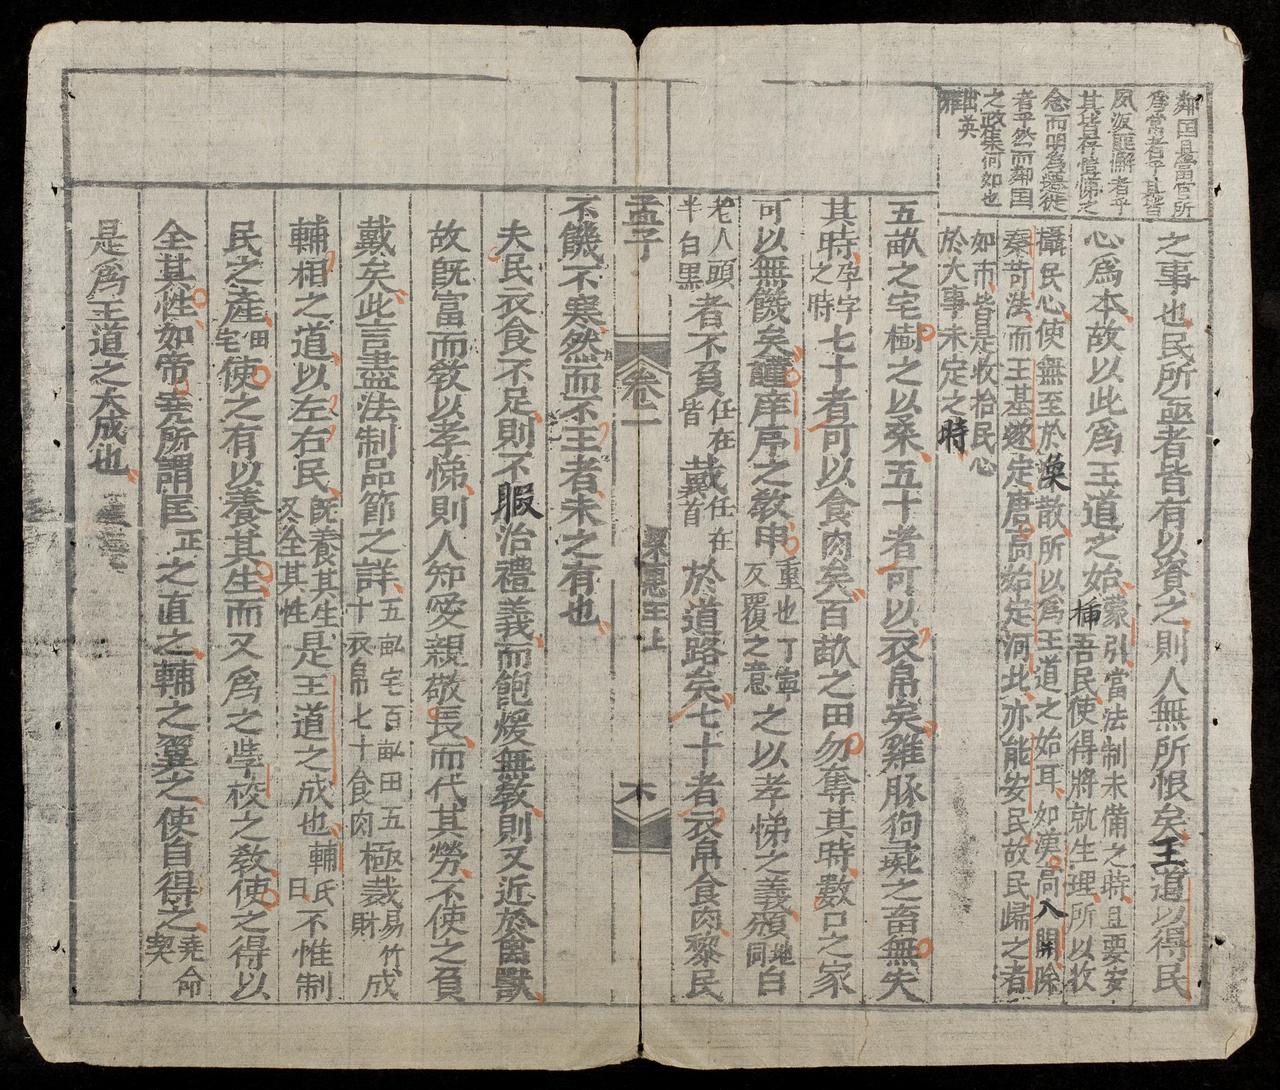 鄰国且富官所
為當者乎其皆
夙汳匪懈者乎
其皆存愷悌之
念而明為遷徙
者乎然而鄰国
之政集何如也
世英
之事也民所亟者皆有以資之則人無所恨矣王道以得民
心為本故以此為王道之始蒙引當法制未備之時且要安
插吾民使得將就生理所以收
攝民心使無至於渙散所以為王道之始耳如漢高入關除
秦苛法而王基遂定唐高始定河北亦能安民故民歸之者
如市皆是收拾民心
於大事未定之時
五畝之宅樹之以桑五十者可以衣帛矣雞豚狗彘之畜無失
其時孕字之時七十者可以食肉矣百畝之田勿奪其時數口之家
可以無饑矣謹庠序之教申重也丁寧反覆之意之以孝悌之義頒地同白
老人頭半白黑者不負任在背戴任在首於道路矣七十者衣帛食肉黎民
孟子 卷一 梁惠王上 六
不饑不寒然而不王者未之有也
夫民衣食不足則不暇治禮義而飽煖無教則又近於禽獸
故既富而教以孝悌則人知愛親敬長而代其勞不使之負
戴矣此言盡法制品節之詳五畝宅百畝田五十衣帛七十食肉極裁易竹財成
輔相之道以左右民既養其生又全其性是王道之成也輔氏曰不惟制
民之產田宅使之有以養其生而又為之學校之教使之得以
全其性如帝堯所謂匡正之直之輔之翼之使自得之堯命契
是為王道之大成也